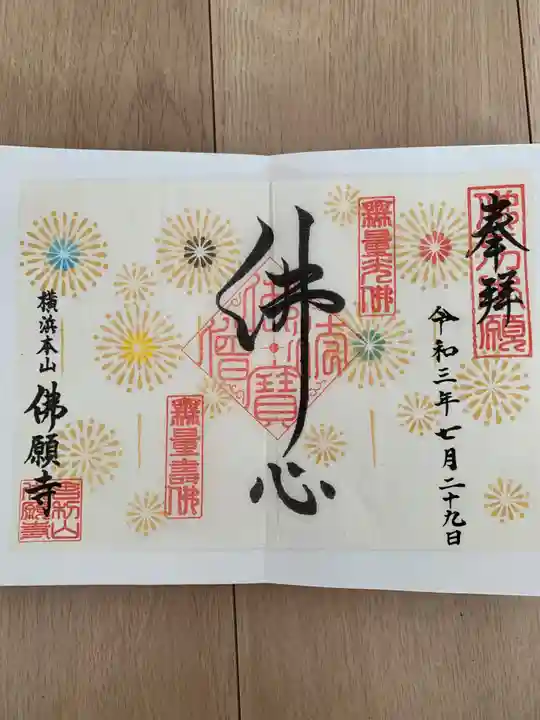 奉拝
令和三年七月二十九日
無量光佛
佛心
無量壽佛
横浜本山
佛願寺